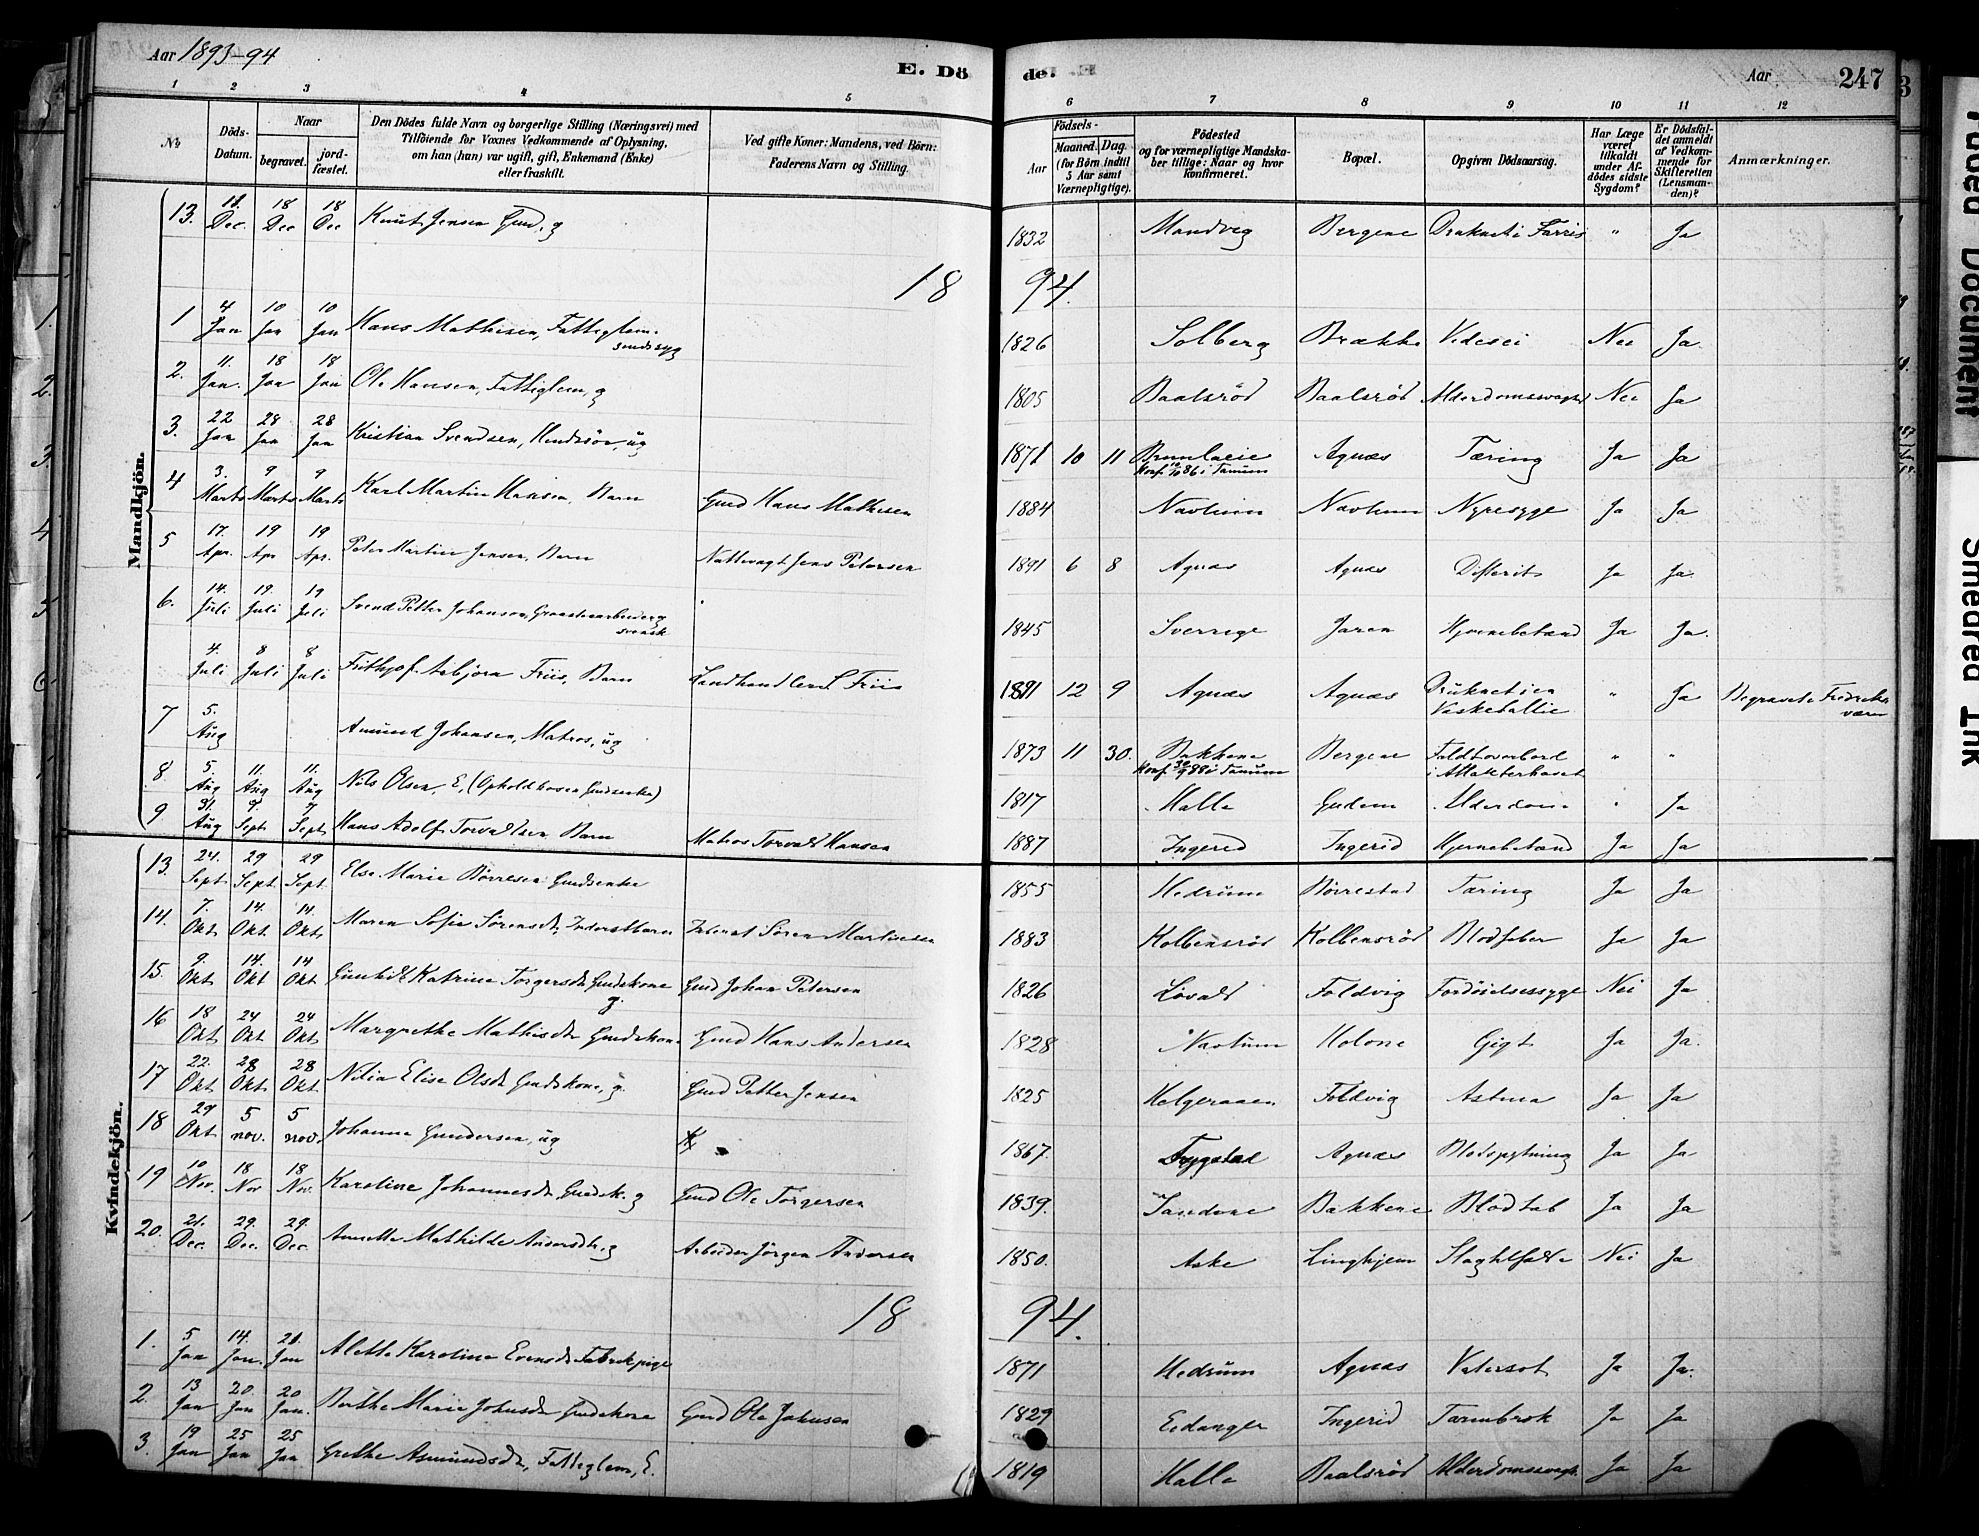 Aar 1893-94
E. Dö
de.
Aar
247
1 2 3 4 5 6 7 8 9 10 11 12
No
Döds-Datum.
Naar
begravet.
jord-fæstet.
Den Dödes fulde Navn og borgerlige Stilling (Næringsvei) med
Tilföiende for Voxnes Vedkommende af Oplysning,
om han (hun) var ugift, gift, Enkemand (Enke)
eller fraskilt.
Ved gifte Koner: Mandens, ved Börn:
Faderens Navn og Stilling.
Födsels-
Aar
Maaned. Dag.
(for Börn indtil
5 Aar samt
Værnepligtige).
Födested
og for værnepligtige Mandska-
ber tillige: Naar og hvor
konfirmeret.
Bopæl.
Opgiven Dödsaarsag.
Har Læge
været
tilkaldt
under Af-
dödes sidste
Sygdom?
Er Dödsfal-
det anmeldt
af Vedkom-
mende for
Skifteretten
(Lensman-
den)?
Anmærkninger.
Mandkjön.
13. 11. Dec. 18 Dec 18 Dec Knut Jensen Gmd, g 1832 Mandvig Bergene Druknet i Farris " Ja
18 94.
1 4 Jan 10 Jan 10 Jan Hans Mathisen, Fattiglem. sindssyg 1826 Solberg Brække Nei Ja
2. 11. Jan. 18 Jan 18 Jan Ole Hansen, Fattiglem, g 1805 Baalsröd Baalsröd Alderdomssvaghed Nei Ja
3. 22 Jan 28 Jan 28 Jan Kristian Svendsen, ug 1871 10 11 Brunlanes Konf. 10/10 86 i Tanum Agnæs Tæring Ja Ja
4 3. Marts 9 Marts 9 Marts Karl Martin Hansen, Barn Gmd Hans Mathisen 1884 Navlum Navlum Nyresyge Ja Ja
5 17. Apr. 19 Apr 19 Apr. Peter Martin Jensen, Barn Nattevagt Jens Petersen 1891 6 8 Agnæs Agnæs Difterit Ja Ja
6. 14. Juli 19. Juli 19 Juli Svend Petter Johanson, Graastensarbeider g svensk 1845 Sverrige Jaren Hjernebetænd Ja Ja.
4. Juli 8 Juli 8 Juli Frithjof Asbjörn Friis, Barn Landhandler Friis 1891 12 9 Agnæs Agnæs Druknet i en Vaskeballie " Ja Begravet i Fredriksværn
7 5. Aug Amund Johansen, Matros, ug 1873 11 30. Bakkene Konf. 30/9 88 i Tanum Bergene Faldt overbord i Atlanterhavet " "
8. 5. Aug 11. Aug 11. Aug Nils Olsen, E, (Ophold hos en Gmdsenke) 1817 Halle Gudem Alderdom " Ja
9 31. Aug 9. Sept 9 Sept Hans Adolf Torvaldsen Barn Matros Torvald Hansen 1887 Ingerid Ingerid Hjernebetænd Ja Ja
Kvindekjön.
13. 24. Sept 29 Sept. 29 Sept. Else Marie Börresen Gmdsenke 1855 Hedrum Börrestad Tæring Ja Ja
14. 7. Okt 14. Okt. 14. Okt. Maren Sofie Sörensdt, Inderstbarn Inderst Sören Martinsen 1883 Kolbensröd Kolbensröd Blodfeber Ja Ja
15. 9. Okt. 14. Okt 14 Okt Gunhild Katrine Torgersdt Gmdskone g. Gmd Johan Petersen 1826 Lövald Foldvig Fordöielsessyge Nei Ja
16 18 Okt 24 Okt 24 Okt. Margrethe Mathisdt Gmdskone Gmd Hans Andersen 1828 Navlum Holone Gigt Ja Ja.
17 22. Okt 28 Okt. 28 Okt. Nilia Elise Olsdt Gmdskone, g. Gmd Petter Jensen 1825 Helgeraaen Foldvig Astma Ja Ja
18 29 Okt 5 nov. 5 nov. Johanne Gundersen, ug 1867. Frygstad Agnæs Blodspytning Ja Ja
19 10 Nov. 18 Nov 18 Nov. Karoline Johannesdt Gmdsk. g Gmd Ole Torgersen 1839. Sandene Bakkene Blodtab Ja Ja
20. 21. Dec. 29. Dec. 29. Dec. Annette Mathilde Andersdt. g Arbeider Jörgen Andersen 1850. Aske Linghjem Slagtilfælde Nei Ja
18 94.
1. 5 Jan 14. Jan. 21 Jan Alette Karoline Evensdt Fabrikpige 1871 Hedrum Agnæs Vatersot Ja Ja.
2. 13 Jan 20. Jan 20 Jan. Berthe Marie Johnsdt Gmdskone Gmd Ole Johnsen 1829 Eidanger Ingerid Tarmbrok Ja Ja
3. 19 Jan 25 Jan 25 Jan Grethe Asmundsdt, Fattiglem, E. 1819 Halle Baalsröd Alderdomssvagh. Ja Ja
Faded Document
Smeared Ink